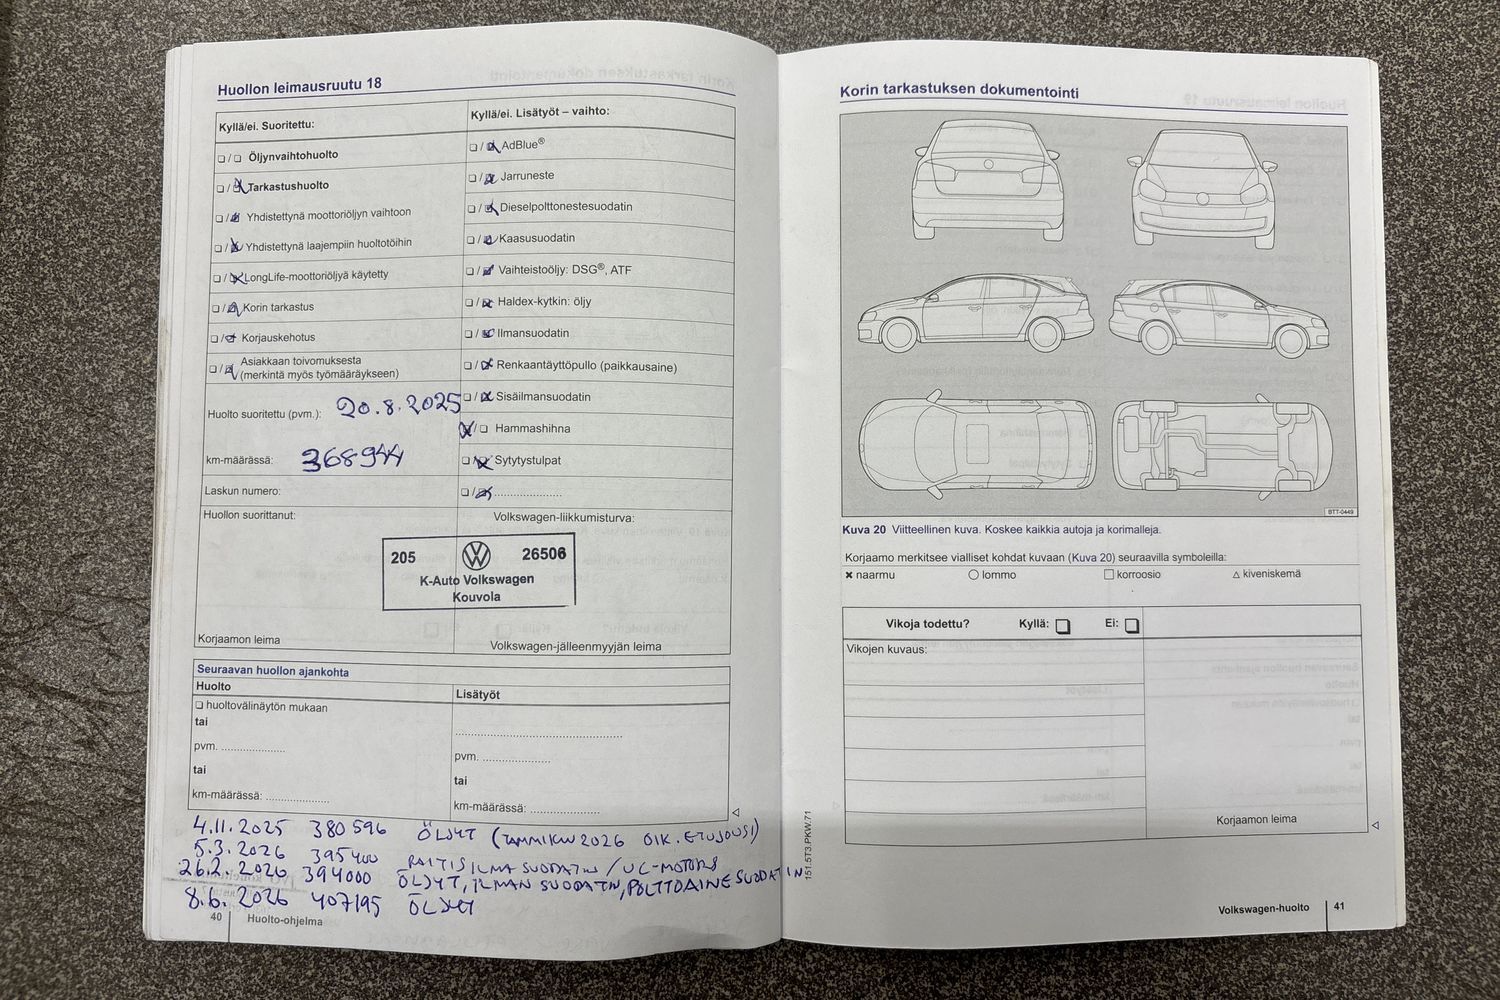 Huollon leimausruutu 18
Kyllä/ei. Suoritettu:
Öljynvaihtohuolto
Tarkastushuolto
Yhdistettynä moottoriöljyn vaihtoon
Yhdistettynä laajempiin huoltotöihin
LongLife-moottoriöljyä käytetty
Korin tarkastus
Korjauskehotus
Asiakkaan toivomuksesta
(merkintä myös työmääräykseen)
Huolto suoritettu (pvm.): 20.8.2025
km-määrässä: 368944
Laskun numero:
Kyllä/ei. Lisätyöt – vaihto:
AdBlue®
Jarruneste
Dieselpolttonestesuodatin
Kaasusuodatin
Vaihteistoöljy: DSG®, ATF
Haldex-kytkin: öljy
Ilmansuodatin
Renkaantäyttöpullo (paikkausaine)
Sisäilmansuodatin
Hammashihna
Sytytystulpat
......................
Huollon suorittanut:
Volkswagen-liikkumisturva:
205 26506
K-Auto Volkswagen
Kouvola
Korjaamon leima
Volkswagen-jälleenmyyjän leima
Seuraavan huollon ajankohta
Huolto
huoltovälinäytön mukaan
tai
pvm. .....................
tai
km-määrässä: .....................
Lisätyöt
pvm. .....................
tai
km-määrässä: .....................
4.11.2025 380596 ÖLJYT (TAMMIKUU 2026 OIK. ETUJOUSI)
5.3.2026 395400 RAITISILMASUODATIN / UC-MOTORS
26.2.2026 394000 ÖLJYT, ILMANSUODATIN, POLTTOAINESUODATIN
8.6.2026 407195 ÖLJYT
40 Huolto-ohjelma
151.5T3.PKW.71
Korin tarkastuksen dokumentointi
BTT-0449
Kuva 20 Viitteellinen kuva. Koskee kaikkia autoja ja korimalleja.
Korjaamo merkitsee vialliset kohdat kuvaan (Kuva 20) seuraavilla symboleilla:
naarmu lommo korroosio kiveniskemä
Vikoja todettu? Kyllä: Ei:
Vikojen kuvaus:
Korjaamon leima
Volkswagen-huolto 41